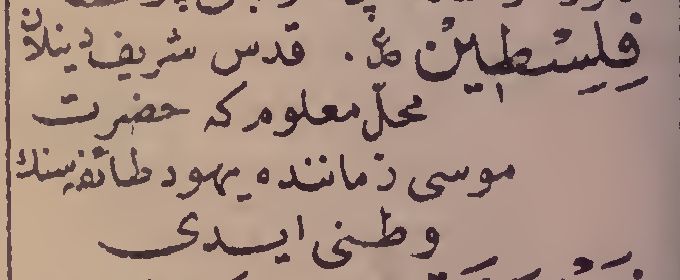 فِلِسْطِينْ ع. قدس شريف دينلان
محلّ معلوم كه حضرت
موسى زماننده يهود طائفه‌سنك
وطنى ايدى